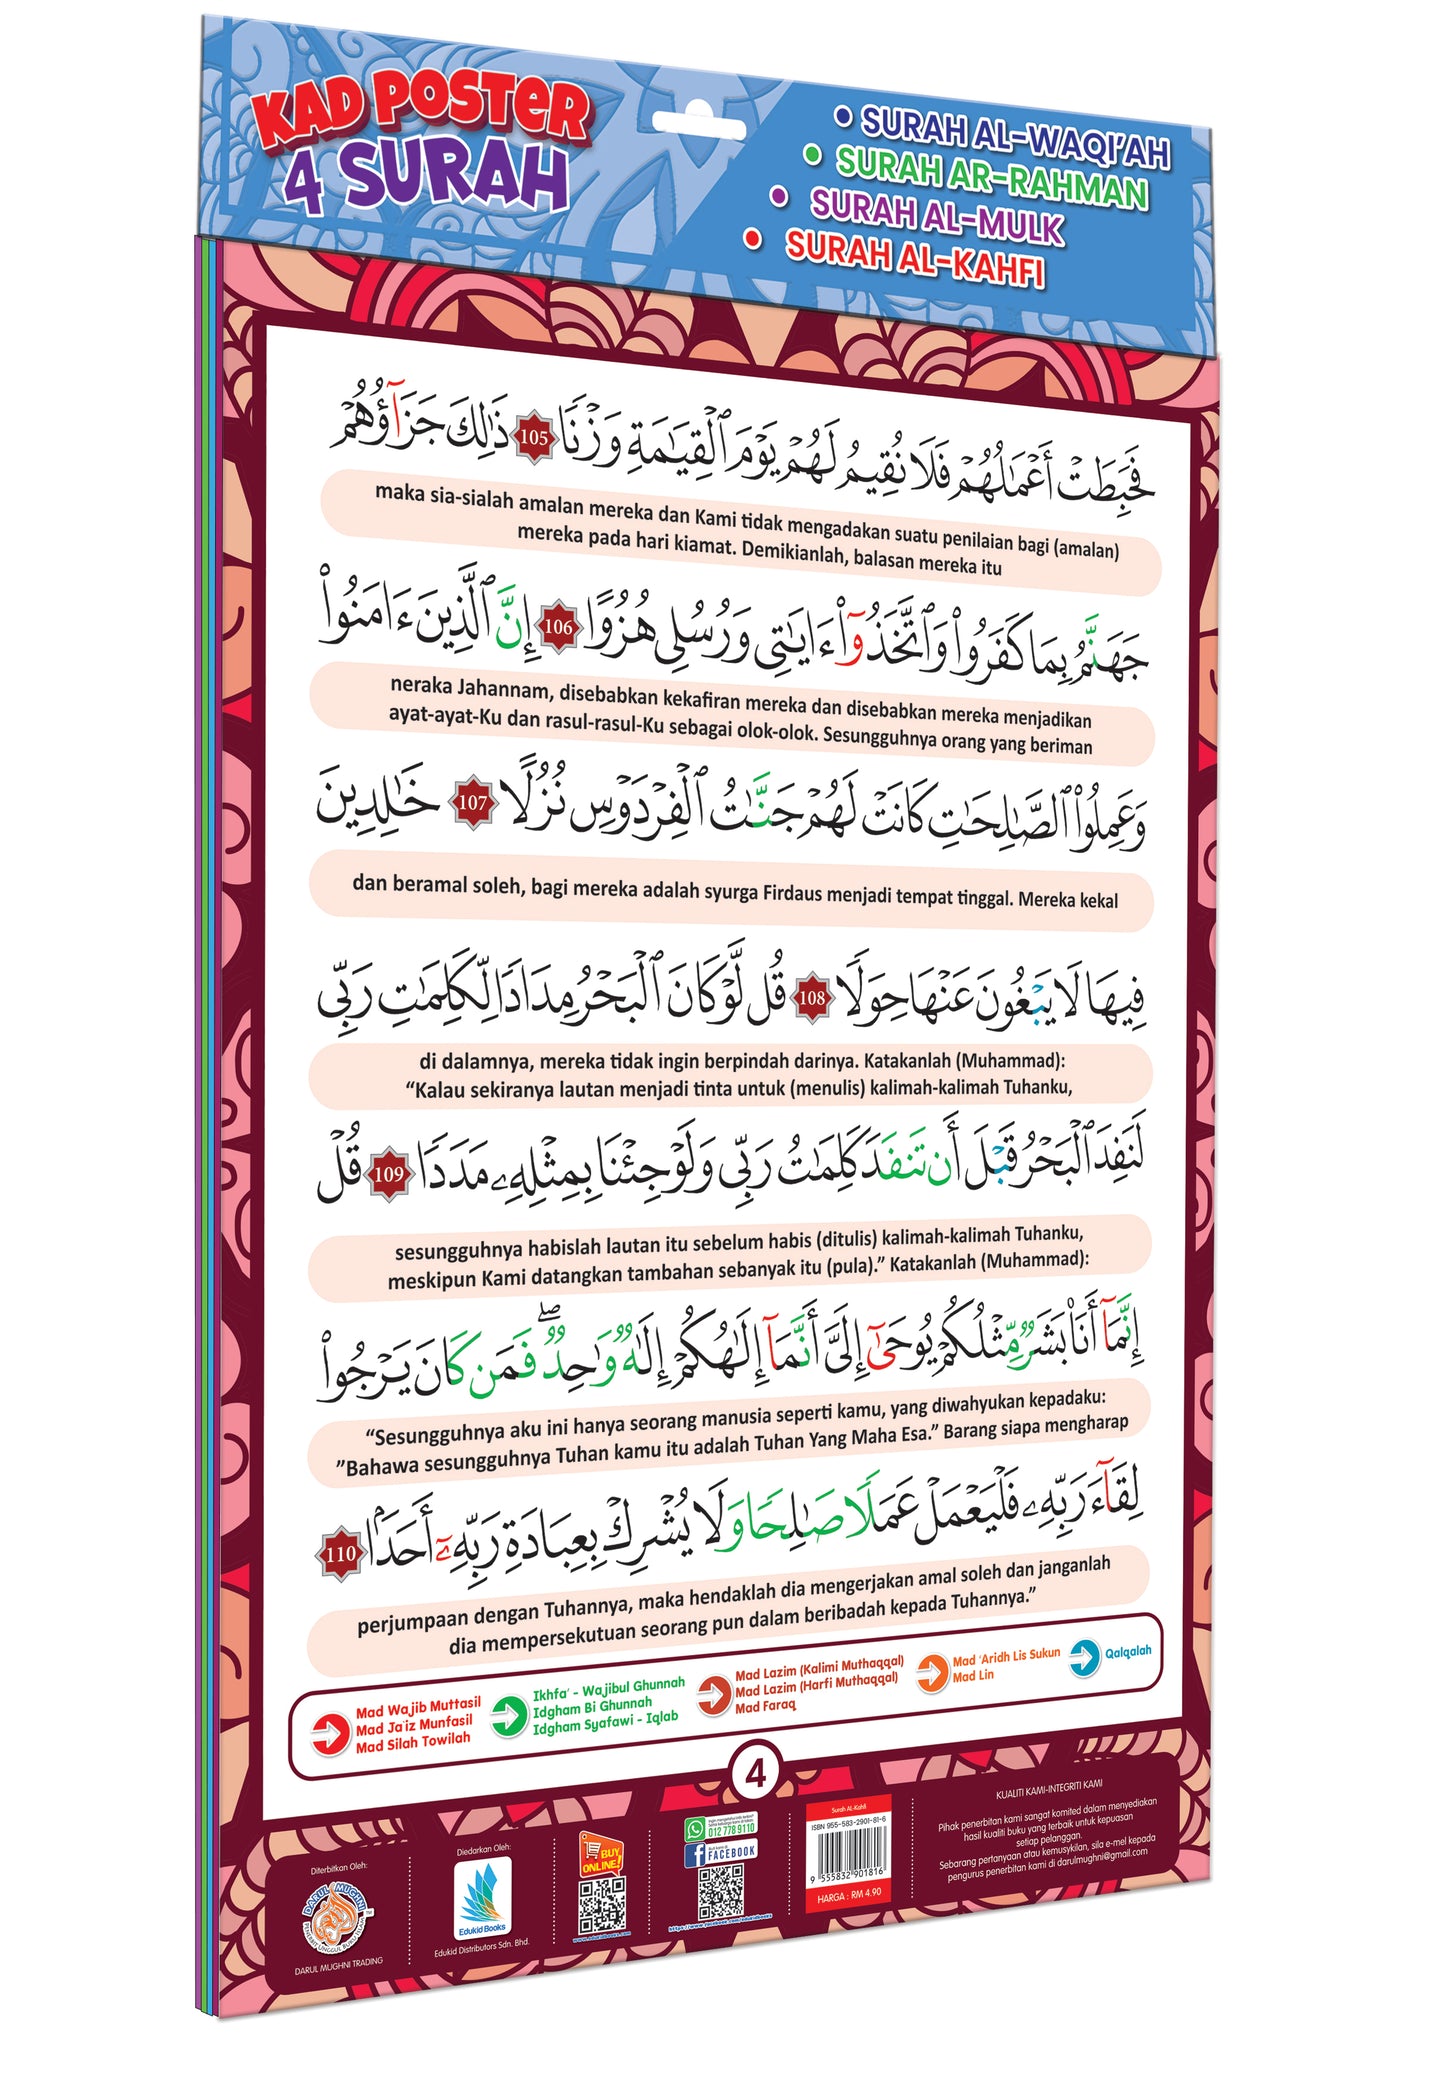 KAD POSTER
4 SURAH
• SURAH AL-WAQI'AH
• SURAH AR-RAHMAN
• SURAH AL-MULK
• SURAH AL-KAHFI
فَحَبِطَتْ أَعْمَٰلُهُمْ فَلَا نُقِيمُ لَهُمْ يَوْمَ ٱلْقِيَٰمَةِ وَزْنًا 105 ذَٰلِكَ جَزَآؤُهُمْ
maka sia-sialah amalan mereka dan Kami tidak mengadakan suatu penilaian bagi (amalan)
mereka pada hari kiamat. Demikianlah, balasan mereka itu
جَهَنَّمُ بِمَا كَفَرُوا۟ وَٱتَّخَذُوٓا۟ ءَايَٰتِى وَرُسُلِى هُزُوًا 106 إِنَّ ٱلَّذِينَ ءَامَنُوا۟
neraka Jahannam, disebabkan kekafiran mereka dan disebabkan mereka menjadikan
ayat-ayat-Ku dan rasul-rasul-Ku sebagai olok-olok. Sesungguhnya orang yang beriman
وَعَمِلُوا۟ ٱلصَّٰلِحَٰتِ كَانَتْ لَهُمْ جَنَّٰتُ ٱلْفِرْدَوْسِ نُزُلًا 107 خَٰلِدِينَ
dan beramal soleh, bagi mereka adalah syurga Firdaus menjadi tempat tinggal. Mereka kekal
فِيهَا لَا يَبْغُونَ عَنْهَا حِوَلًا 108 قُل لَّوْ كَانَ ٱلْبَحْرُ مِدَادًا لِّكَلِمَٰتِ رَبِّى
di dalamnya, mereka tidak ingin berpindah darinya. Katakanlah (Muhammad):
“Kalau sekiranya lautan menjadi tinta untuk (menulis) kalimah-kalimah Tuhanku,
لَنَفِدَ ٱلْبَحْرُ قَبْلَ أَن تَنفَدَ كَلِمَٰتُ رَبِّى وَلَوْ جِئْنَا بِمِثْلِهِۦ مَدَدًا 109 قُلْ
sesungguhnya habislah lautan itu sebelum habis (ditulis) kalimah-kalimah Tuhanku,
meskipun Kami datangkan tambahan sebanyak itu (pula).” Katakanlah (Muhammad):
إِنَّمَآ أَنَا۠ بَشَرٌ مِّثْلُكُمْ يُوحَىٰٓ إِلَىَّ أَنَّمَآ إِلَٰهُكُمْ إِلَٰهٌ وَٰحِدٌ ۖ فَمَن كَانَ يَرْجُوا۟
“Sesungguhnya aku ini hanya seorang manusia seperti kamu, yang diwahyukan kepadaku:
”Bahawa sesungguhnya Tuhan kamu itu adalah Tuhan Yang Maha Esa.” Barang siapa mengharap
لِقَآءَ رَبِّهِۦ فَلْيَعْمَلْ عَمَلًا صَٰلِحًا وَلَا يُشْرِكْ بِعِبَادَةِ رَبِّهِۦٓ أَحَدًۢا 110
perjumpaan dengan Tuhannya, maka hendaklah dia mengerjakan amal soleh dan janganlah
dia mempersekutuan seorang pun dalam beribadah kepada Tuhannya.”
Mad Wajib Muttasil
Mad Ja'iz Munfasil
Mad Silah Towilah
Ikhfa' - Wajibul Ghunnah
Idgham Bi Ghunnah
Idgham Syafawi - Iqlab
Mad Lazim (Kalimi Muthaqqal)
Mad Lazim (Harfi Muthaqqal)
Mad Faraq
Mad 'Aridh Lis Sukun
Mad Lin
Qalqalah
4
Diterbitkan Oleh:
DARUL MUGHNI
DARUL MUGHNI TRADING
Diedarkan Oleh:
Edukid Books
Edukid Distributors Sdn. Bhd.
BUY ONLINE!
www.edukidbooks.com
012 778 9110
FACEBOOK
https://www.facebook.com/edukidbooks
Surah AL-Kahfi
ISBN 955-583-2901-81-6
9 555832 901816
HARGA : RM 4.90
KUALITI KAMI-INTEGRITI KAMI
Pihak penerbitan kami sangat komited dalam menyediakan
hasil kualiti buku yang terbaik untuk kepuasan
setiap pelanggan.
Sebarang pertanyaan atau kemusykilan, sila e-mel kepada
pengurus penerbitan kami di darulmughni@gmail.com